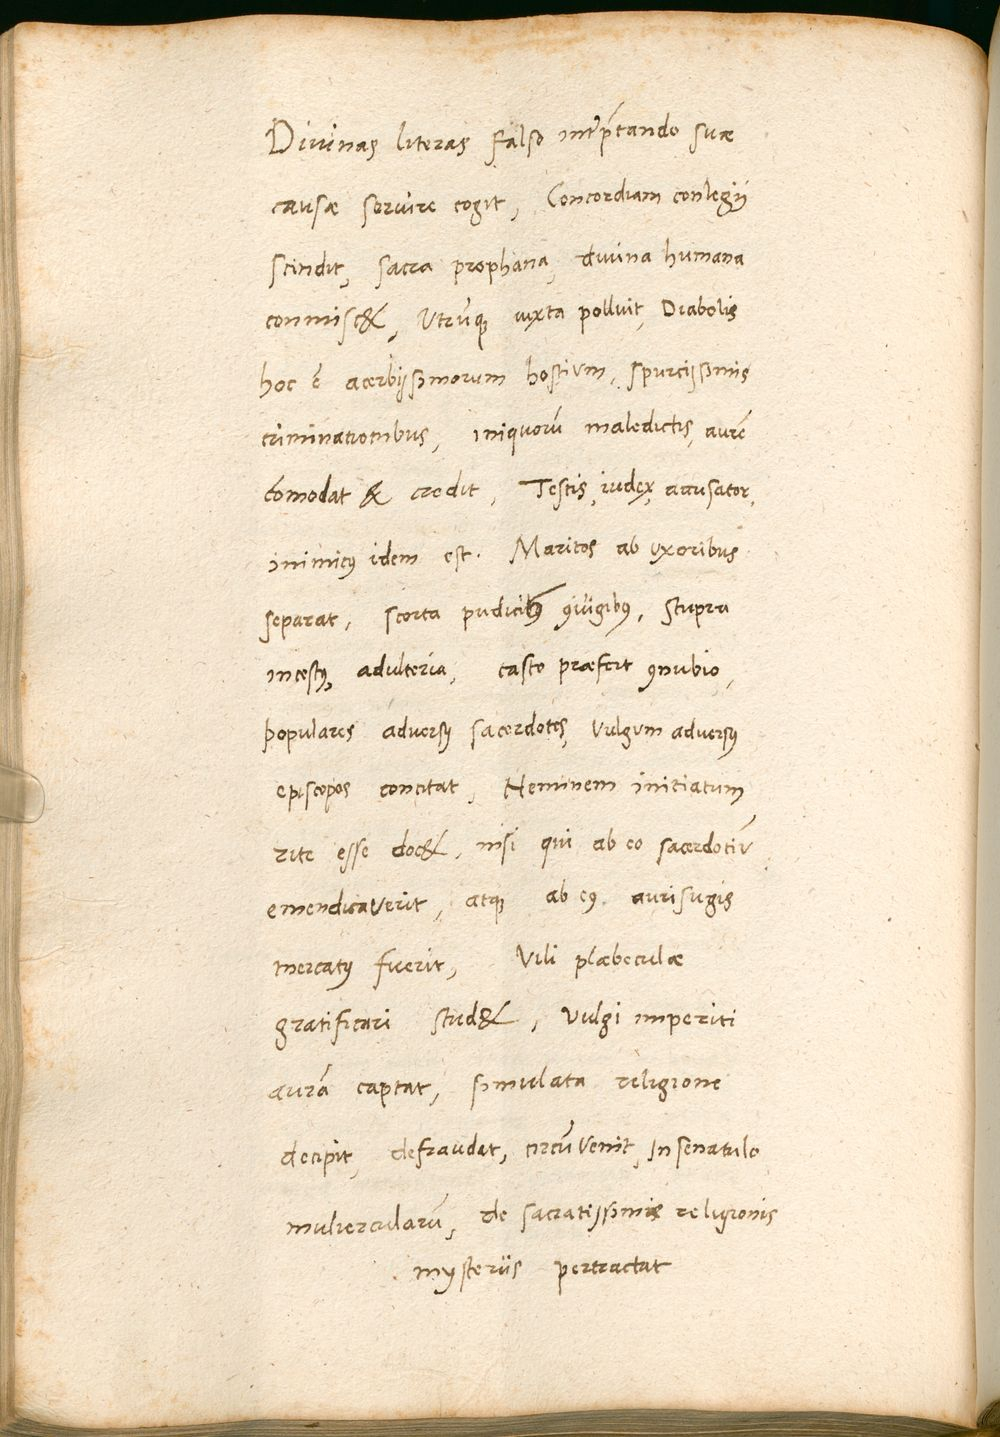 Diuinas literas falso int̃p̃tando suæ
causæ seruire cogit, Concordiam conlegij
scindit, sacra prophana, diuina humana
conmisc&, Vtrũq; iuxta polluit, Diabolis
hoc ẽ acerbissimorum hostium, spurcissimis
criminationibus, iniquorũ maledictis, aurẽ
cõmodat & credit, Testis, iudex, accusator,
inimicꝰ idem est. Maritos ab vxoribus
separat, scorta pudicibꝰ ꝯiũgibꝰ, stupra
incestꝰ, adulteria, casto præfert ꝯnubio,
populares aduersꝰ sacerdotes, Vulgum aduersꝰ
episcopos concitat, Neminem initiatum
rite esse doc&, nisi qui ab eo sacerdotiũ
emendicaverit, atq; ab eꝰ aurisugis
mercatꝰ fuerit, Vili plæbeculæ
gratificari stud&, Vulgi imperiti
aurã captat, simulata religione
decipit, defraudat, circũvenit, In senatulo
muliercularũ, de sacratissimis religionis
mysteriis pertractat